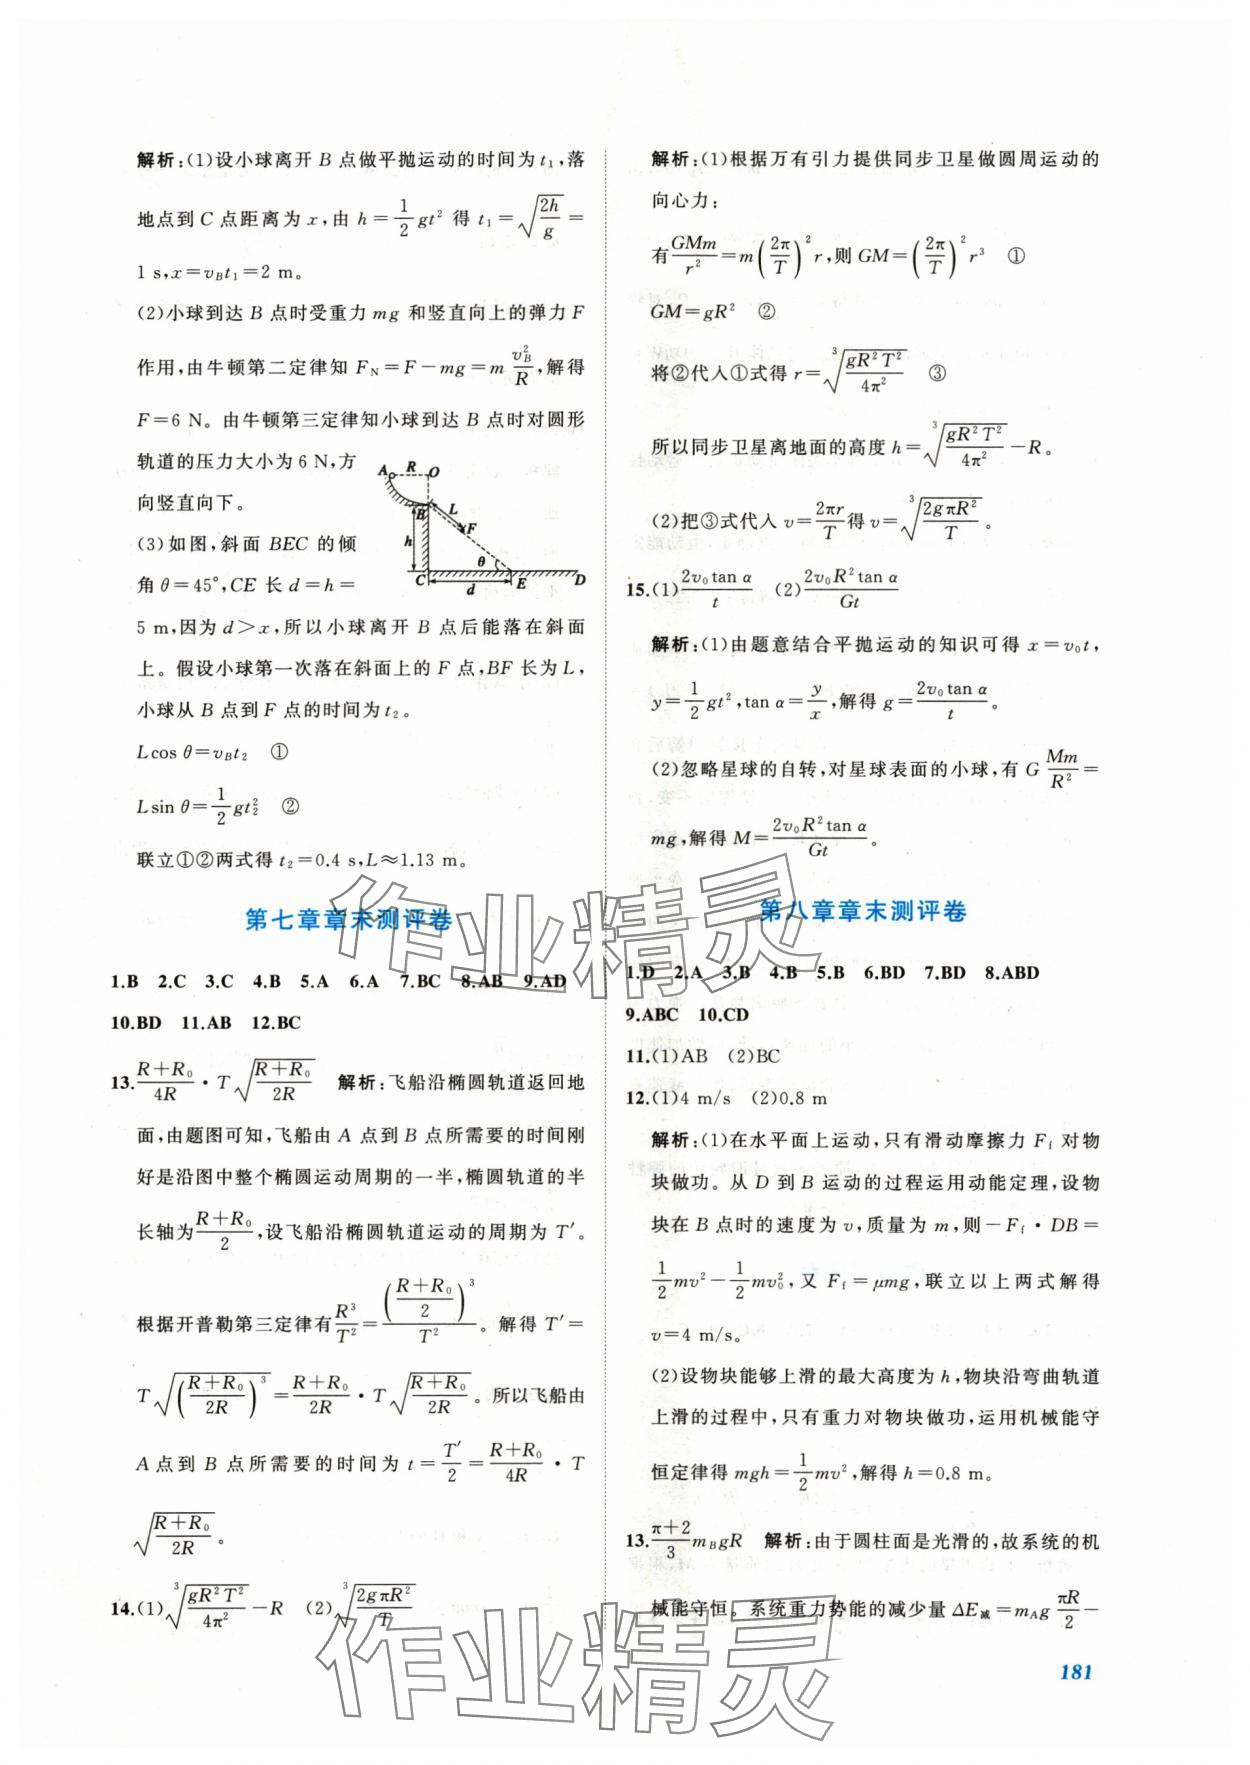 解析:(1)设小球离开 B 点做平抛运动的时间为 t₁,落
地点到 C 点距离为 x,由 h=\frac{1}{2}gt² 得 t₁=\sqrt{\frac{2h}{g}}=
1 s,x=v_Bt₁=2 m。
(2)小球到达 B 点时受重力 mg 和竖直向上的弹力 F
作用,由牛顿第二定律知 F_N=F-mg=m\frac{v_B^2}{R},解得
F=6 N。由牛顿第三定律知小球到达 B 点时对圆形
轨道的压力大小为 6 N,方
向竖直向下。
(3)如图,斜面 BEC 的倾
角 θ=45°,CE 长 d=h=
A R O
B L F
h θ
C d E D
5 m,因为 d>x,所以小球离开 B 点后能落在斜面
上。假设小球第一次落在斜面上的 F 点,BF 长为 L,
小球从 B 点到 F 点的时间为 t₂。
Lcos θ=v_Bt₂ ①
Lsin θ=\frac{1}{2}gt₂² ②
联立①②两式得 t₂=0.4 s,L≈1.13 m。
第七章章末测评卷
1.B 2.C 3.C 4.B 5.A 6.A 7.BC 8.AB 9.AD
10.BD 11.AB 12.BC
13.\frac{R+R₀}{4R}·T\sqrt{\frac{R+R₀}{2R}} 解析:飞船沿椭圆轨道返回地
面,由题图可知,飞船由 A 点到 B 点所需要的时间刚
好是沿图中整个椭圆运动周期的一半,椭圆轨道的半
长轴为\frac{R+R₀}{2},设飞船沿椭圆轨道运动的周期为 T′。
根据开普勒第三定律有\frac{R³}{T²}=\frac{(\frac{R+R₀}{2})³}{T²}。解得 T′=
T\sqrt{(\frac{R+R₀}{2R})³}=\frac{R+R₀}{2R}·T\sqrt{\frac{R+R₀}{2R}}。所以飞船由
A 点到 B 点所需要的时间为 t=\frac{T′}{2}=\frac{R+R₀}{4R}·T
\sqrt{\frac{R+R₀}{2R}}。
14.(1)\sqrt[3]{\frac{gR²T²}{4π²}}-R (2)\sqrt[3]{\frac{2gπR²}{T}}
解析:(1)根据万有引力提供同步卫星做圆周运动的
向心力:
有\frac{GMm}{r²}=m(\frac{2π}{T})²r,则 GM=(\frac{2π}{T})²r³ ①
GM=gR² ②
将②代入①式得 r=\sqrt[3]{\frac{gR²T²}{4π²}} ③
所以同步卫星离地面的高度 h=\sqrt[3]{\frac{gR²T²}{4π²}}-R。
(2)把③式代入 v=\frac{2πr}{T}得 v=\sqrt[3]{\frac{2gπR²}{T}}。
15.(1)\frac{2v₀tan α}{t} (2)\frac{2v₀R²tan α}{Gt}
解析:(1)由题意结合平抛运动的知识可得 x=v₀t,
y=\frac{1}{2}gt²,tan α=\frac{y}{x},解得 g=\frac{2v₀tan α}{t}。
(2)忽略星球的自转,对星球表面的小球,有 G\frac{Mm}{R²}=
mg,解得 M=\frac{2v₀R²tan α}{Gt}。
第八章章末测评卷
1.D 2.A 3.B 4.B 5.B 6.BD 7.BD 8.ABD
9.ABC 10.CD
11.(1)AB (2)BC
12.(1)4 m/s (2)0.8 m
解析:(1)在水平面上运动,只有滑动摩擦力 F_f 对物
块做功。从 D 到 B 运动的过程运用动能定理,设物
块在 B 点时的速度为 v,质量为 m,则-F_f·DB=
\frac{1}{2}mv²-\frac{1}{2}mv₀²,又 F_f=μmg,联立以上两式解得
v=4 m/s。
(2)设物块能够上滑的最大高度为 h,物块沿弯曲轨道
上滑的过程中,只有重力对物块做功,运用机械能守
恒定律得 mgh=\frac{1}{2}mv²,解得 h=0.8 m。
13.\frac{π+2}{3}m_BgR 解析:由于圆柱面是光滑的,故系统的机
械能守恒。系统重力势能的减少量 ΔE减=m_Ag\frac{πR}{2}-
181
作业精灵
作业精灵